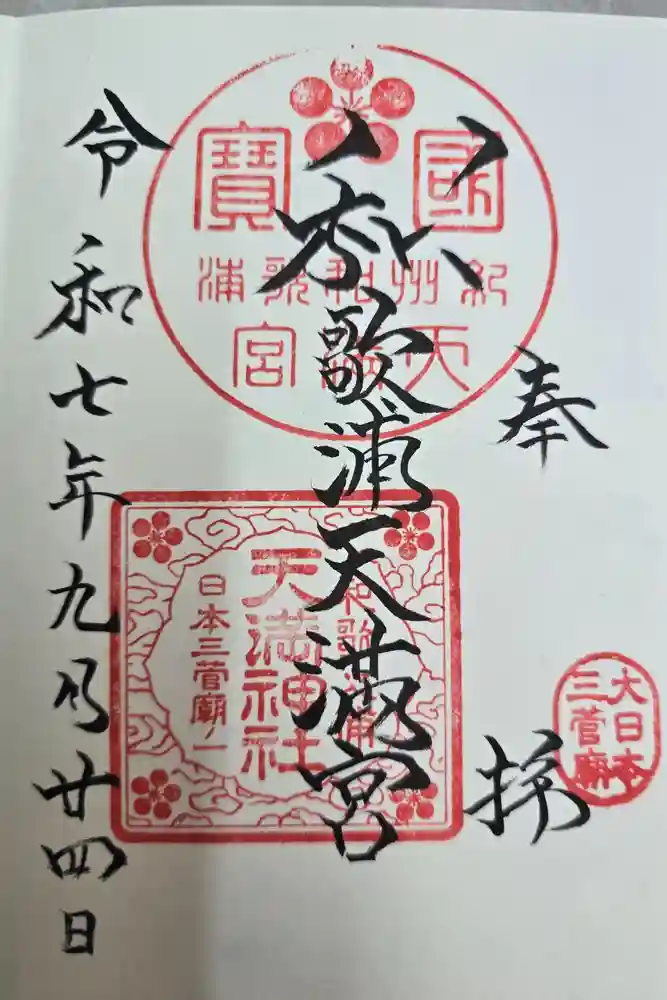 奉拝
大日本
三菅廟
國寶
紀州和歌浦
天満宮
歌浦天満宮
和歌浦
天満神社
日本三菅廟ノ一
令和七年九月廿四日